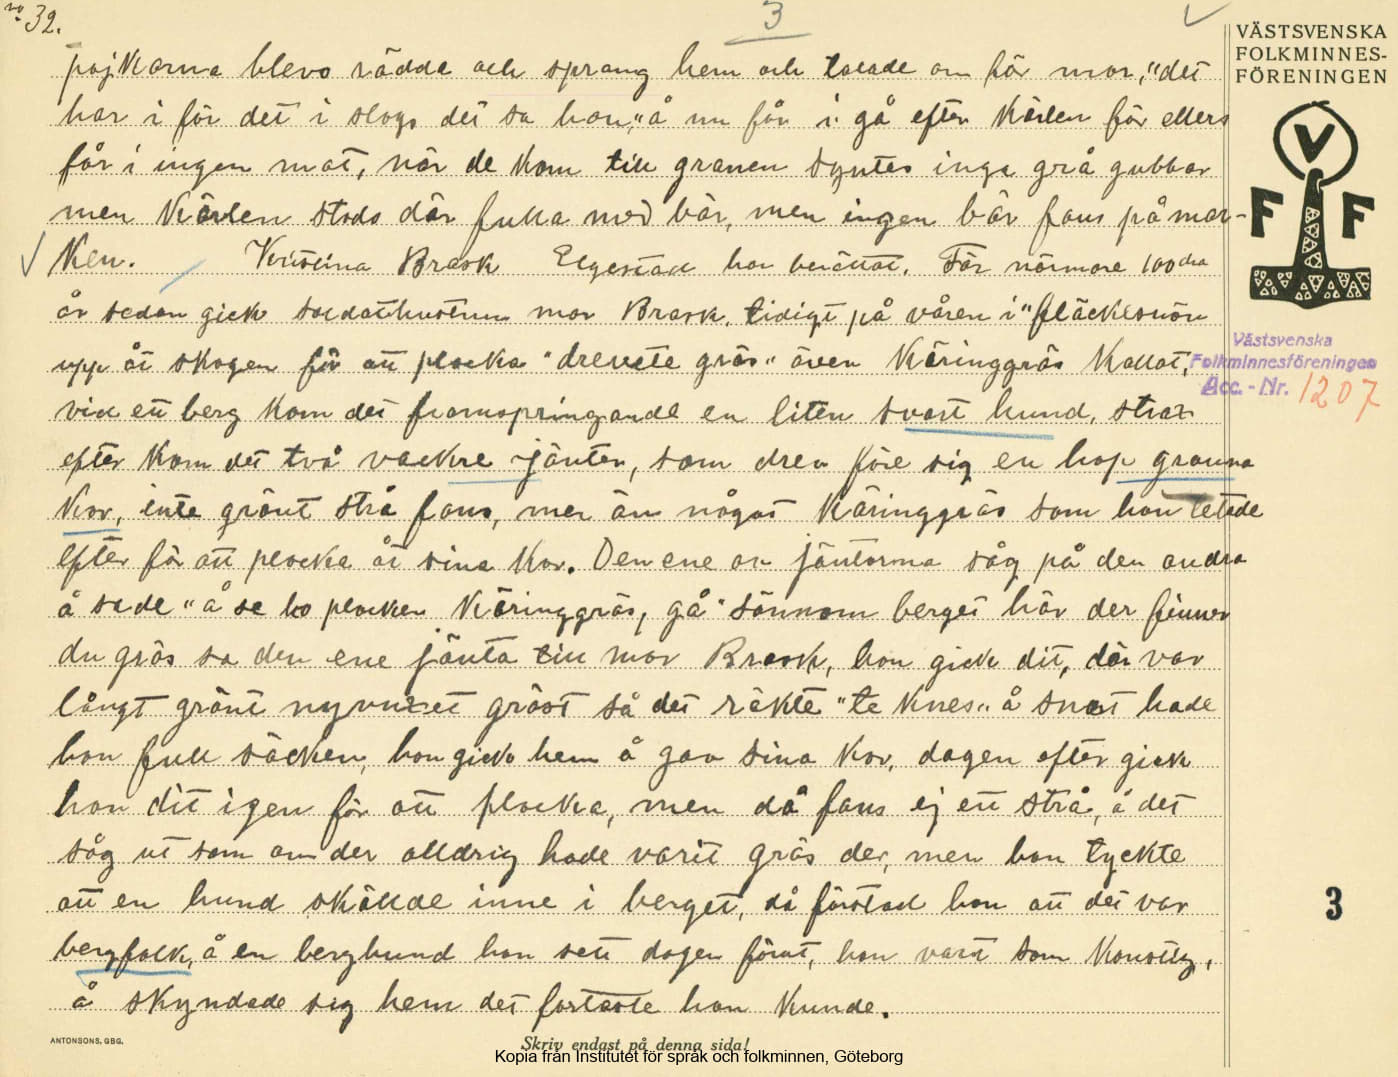 no 32.
3
VÄSTSVENSKA
FOLKMINNES-
FÖRENINGEN
V
F F
pojkarna blevo rädda och sprang hem och talade om för mor, "det
har i för det i slogs det sa hon," å nu får i gå efter kärlen för ellers
får i ingen mat, när de kom till granen syntes inga grå gubbar
men kärlen stodo där fulla med bär, men ingen bär fans på mar-
ken. Kristina Brask Elgestad har berättat. För närmare 100 dra
år sedan gick soldathustrun mor Brask, tidigt på våren i "fläckesnön
upp åt skogen för att plocka "drevete gräs" även Käringgräs kallat,
Västsvenska
Folkminnesföreningen
Acc.-Nr. 1207
vid ett berg kom det framspringande en liten svart hund, strax
efter kom det två vackre jänter, som drev före sig en hop granna
kor, inte grönt strå fans, mer än något käringgräs som hon letade
efter för att plocka åt sina kor. Den ene av jäntorna såg på den andra
å sade "å se ho plocken Käringgräs, gå" sönnom berget här der finner
du gräs sa den ene jänta till mor Brask, hon gick dit, där var
långt grönt nyvuxet gräst så det räkte "te knes" å snart hade
hon full säcken, hon gick hem å gav sina kor, dagen efter gick
hon dit igen för att plocka, men då fans ej ett strå, å det
såg ut som om der alldrig hade varit gräs der, men hon tyckte
att en hund skällde inne i berget, då förstod hon att det var
bergfolk, å en berghund hon sett dagen förut, hon vart som konstig,
å skyndade sig hem det fortaste hon kunde.
3
ANTONSONS, GBG.
Skriv endast på denna sida!
Kopia från Institutet för språk och folkminnen, Göteborg